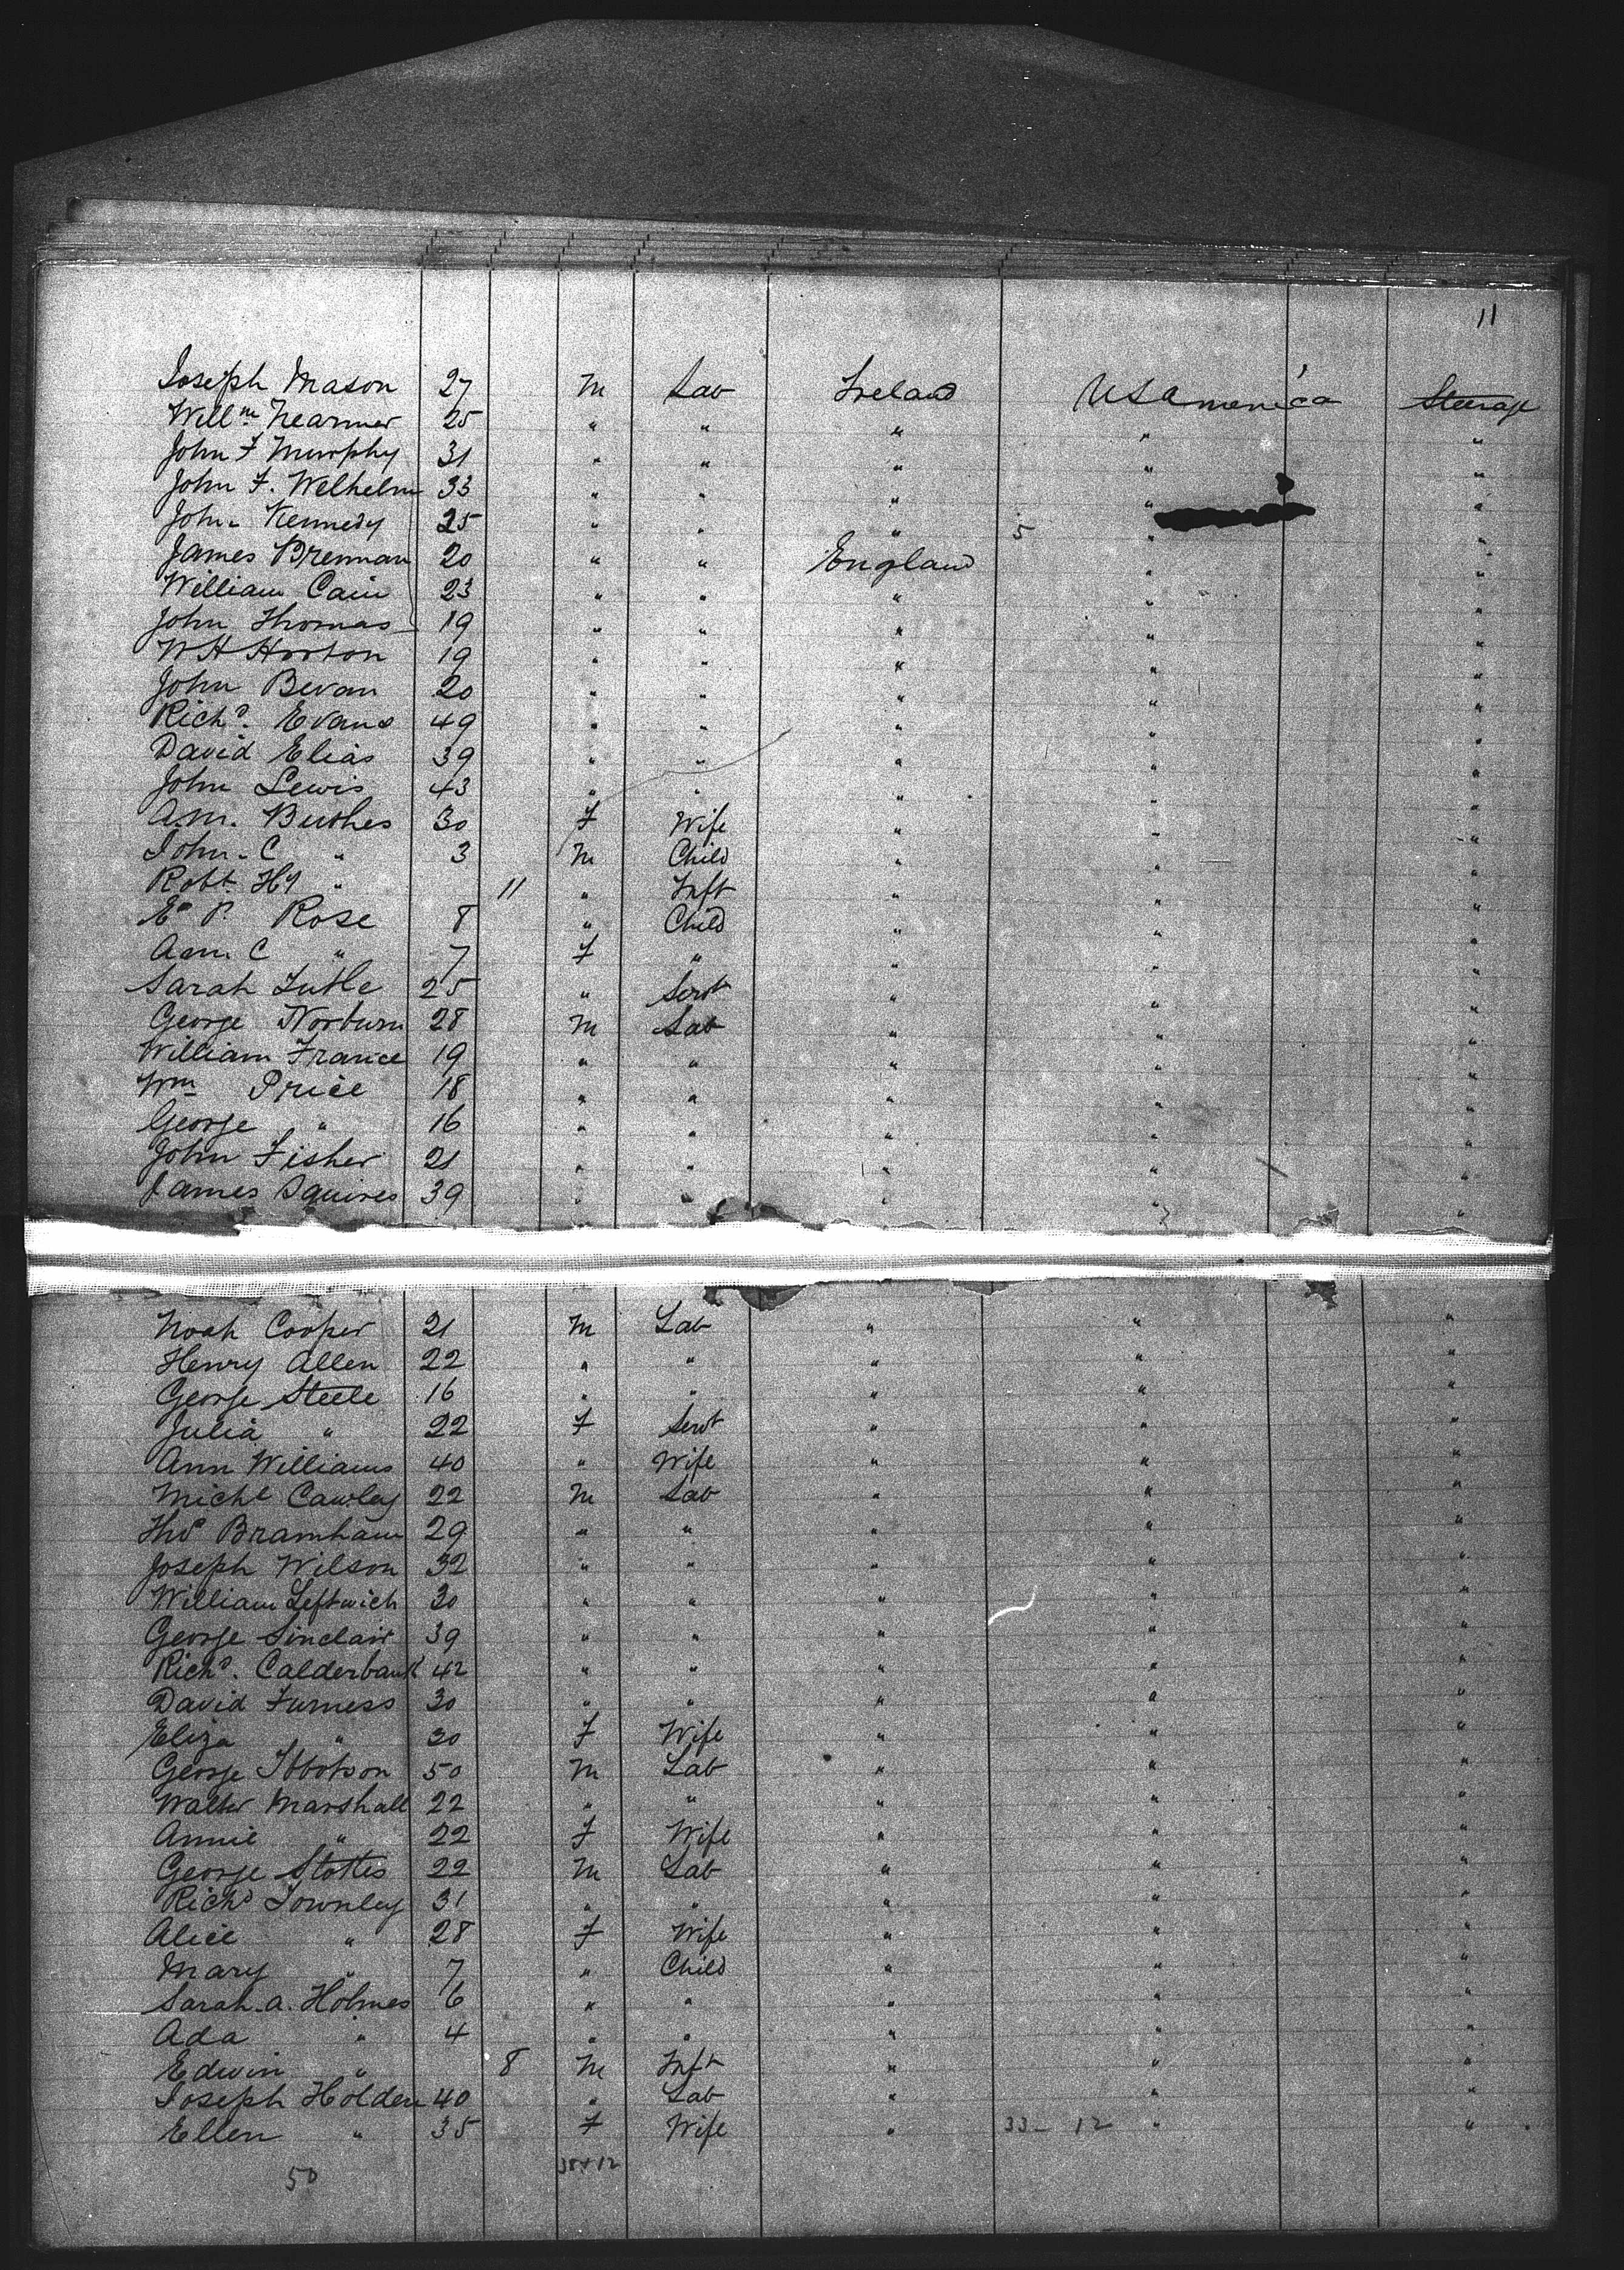 11
Joseph Mason 27 M Lab Ireland USAmerica Steerage
Willm Nearmer 25 " " " " "
John F Murphy 31 " " " " "
John F. Welhelm 33 " " " " "
John Kennedy 25 " " " 5 " "
James Brennan 20 " " England " "
William Cain 23 " " " " "
John Thomas 19 " " " " "
W H Horton 19 " " " " "
John Bevan 20 " " " " "
Richd. Evans 49 " " " " "
David Elias 39 " " " " "
John Lewis 43 " " " " "
A.M. Bushes 30 F Wife " " "
John. C " 3 M Child " " "
Robt. Hy " 11 " Inft " " "
P. Rose 8 " Child " " "
Ann. C " 7 F " " " "
Sarah Tutle 25 " Servt " " "
George Norburn 28 M Lab " " "
William France 19 " " " " "
Wm Price 18 " " " " "
George " 16 " " " " "
John Fisher 21 " " " " "
James Squires 39 " " " " "
Noah Cooper 21 M Lab " " "
Henry Allen 22 " " " " "
George Steele 16 " " " " "
Julia " 22 F Servt " " "
Ann Williams 40 " Wife " " "
Michl Cawley 22 M Lab " " "
Thos Bramham 29 " " " " "
Joseph Wilson 32 " " " " "
William Leftwich 30 " " " " "
George Sinclair 39 " " " " "
Richd. Calderbank 42 " " " " "
David Furness 30 " " " " "
Eliza " 30 F Wife " " "
George Ibbotson 50 M Lab " " "
Walter Marshall 22 " " " " "
Annie " 22 F Wife " " "
George Stottis 22 M Lab " " "
Richd Townley 31 " " " " "
Alice " 28 F Wife " " "
Mary " 7 " Child " " "
Sarah. A. Holmes 6 " " " " "
Ada " 4 " " " " "
Edwin " 8 M Inft " " "
Joseph Holden 40 " Lab " " "
Ellen " 35 F Wife " 33 - 12 " "
50 38+12